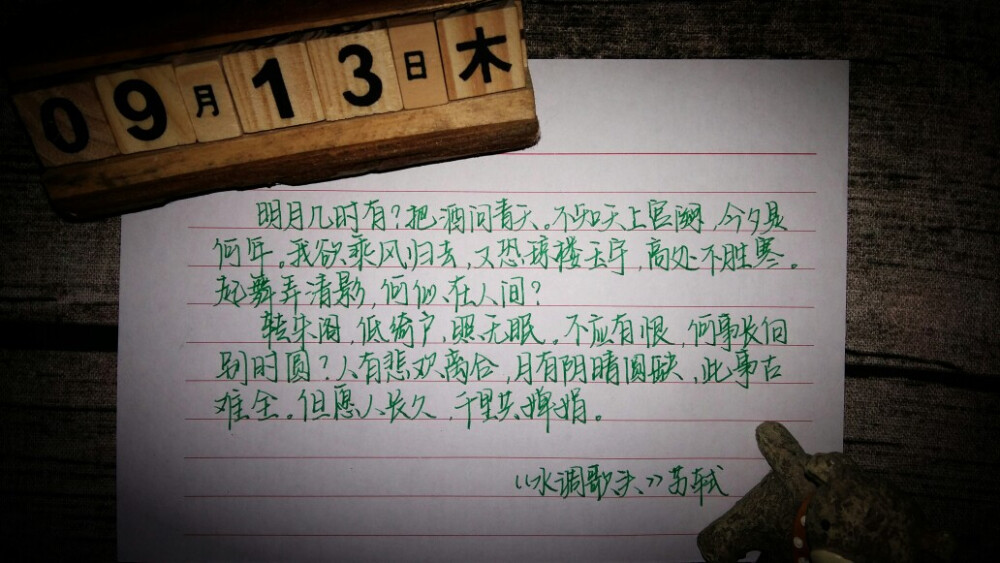 09月13日木
明月几时有？把酒问青天。不知天上宫阙，今夕是
何年。我欲乘风归去，又恐琼楼玉宇，高处不胜寒。
起舞弄清影，何似在人间？
转朱阁，低绮户，照无眠。不应有恨，何事长向
别时圆？人有悲欢离合，月有阴晴圆缺，此事古
难全。但愿人长久，千里共婵娟。
《水调歌头》苏轼